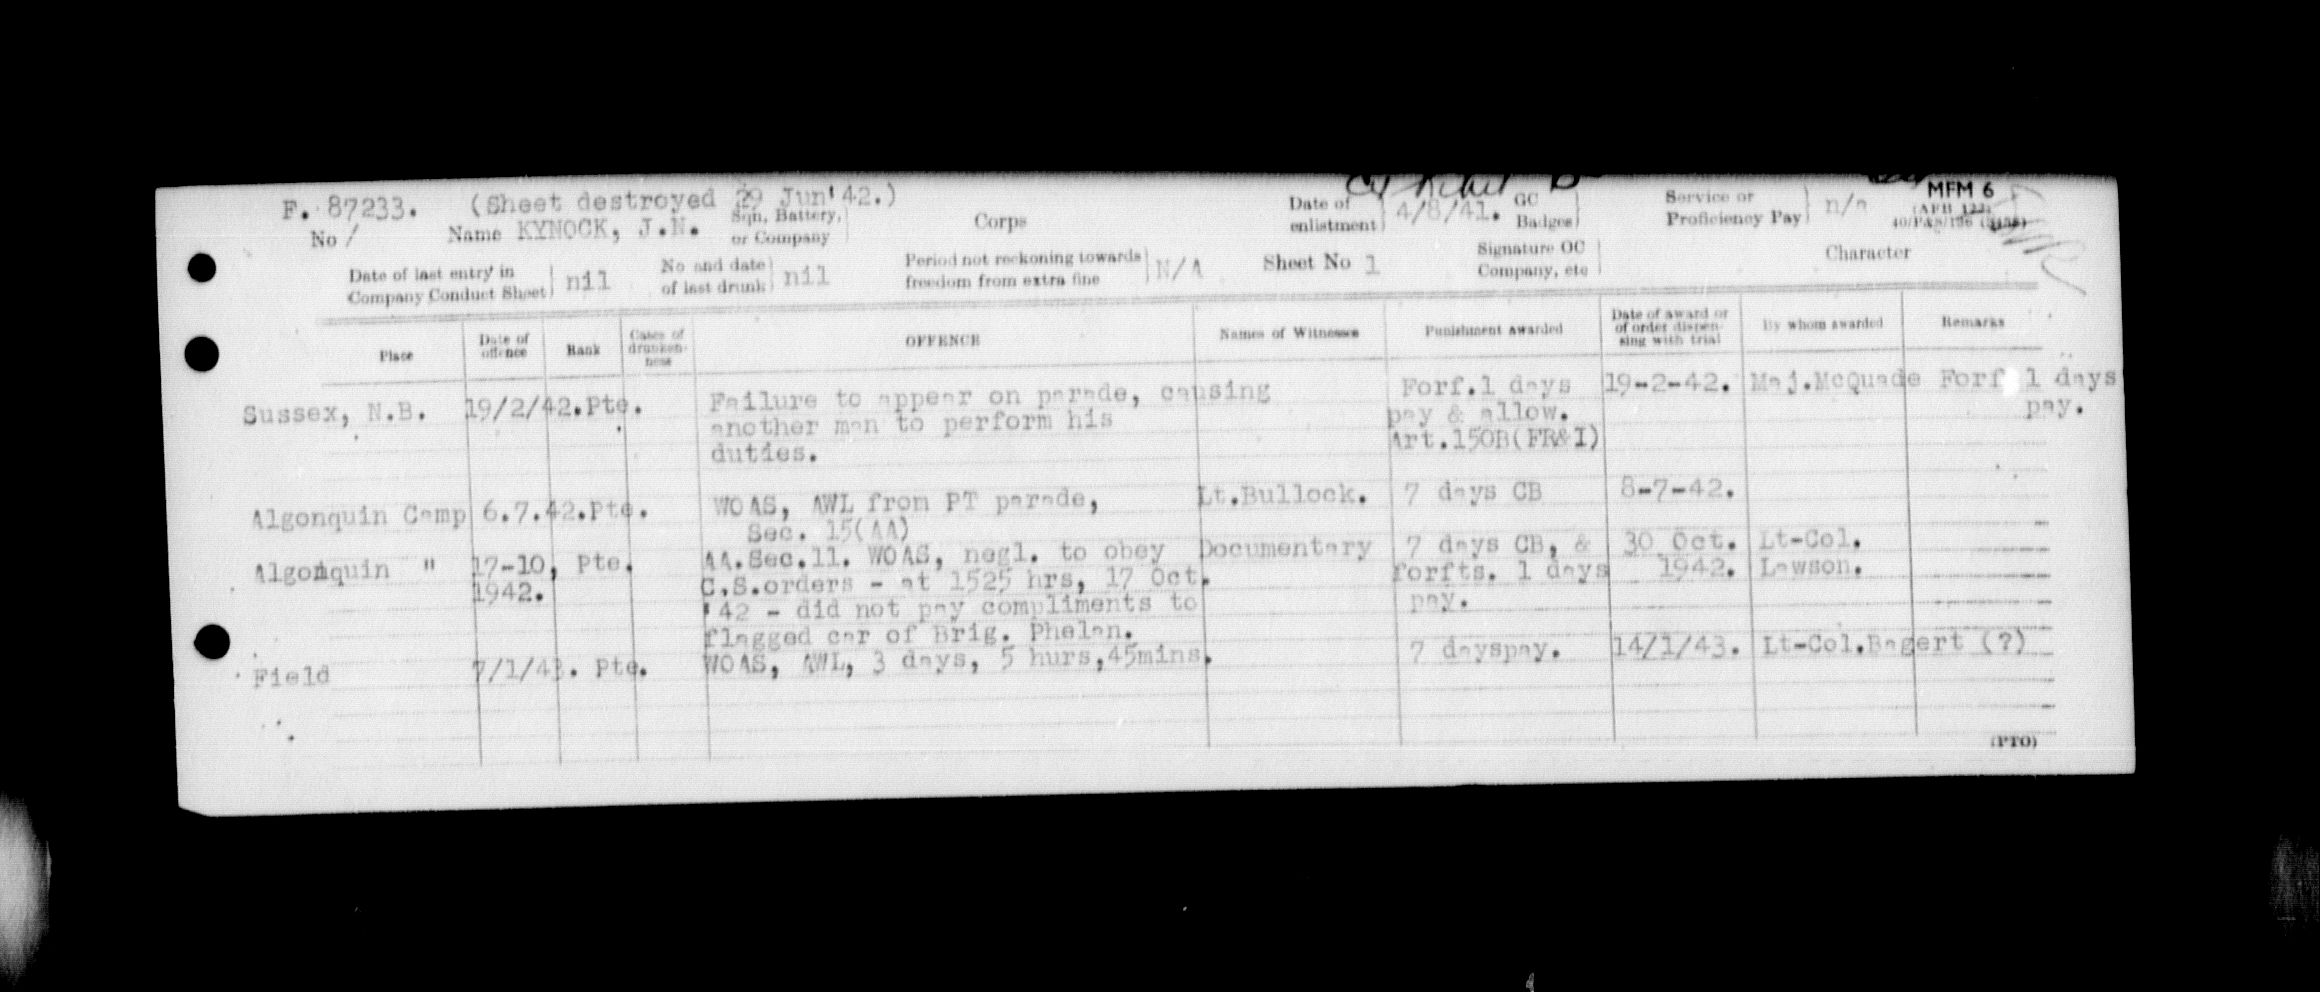 F. 87233. (Sheet destroyed 29 Jun'42.)
Exhibit B
MFM 6
(AFB 122)
No / Name KYNOCK, J.N. Sqn, Battery, or Company Corps Date of enlistment 4/8/41. GC Badges Service or Proficiency Pay n/a
Date of last entry in Company Conduct Sheet nil No and date of last drunk nil Period not reckoning towards freedom from extra fine N/A Sheet No 1 Signature OC Company, etc Character
Place Date of offence Rank Cases of drunkenness OFFENCE Names of Witnesses Punishment awarded Date of award or of order dispensing with trial By whom awarded Remarks
Sussex, N.B. 19/2/42. Pte. Failure to appear on parade, causing Forf.1 days 19-2-42. Maj.McQuade Forf 1 days
another man to perform his pay & allow. pay.
duties. Art.150B(FR&I)
Algonquin Camp 6.7.42. Pte. WOAS, AWL from PT parade, Lt.Bullock. 7 days CB 8-7-42.
Sec. 15(AA)
Algonquin " 17-10, Pte. AA.Sec.11. WOAS, negl. to obey Documentary 7 days CB, & 30 Oct. Lt-Col.
1942. C.S.orders - at 1525 hrs, 17 Oct. forfts. 1 days 1942. Lawson.
'42 - did not pay compliments to pay.
flagged car of Brig. Phelan.
Field 7/1/43. Pte. WOAS, AWL, 3 days, 5 hurs,45mins. 7 dayspay. 14/1/43. Lt-Col.Bagert (?)
(PTO)